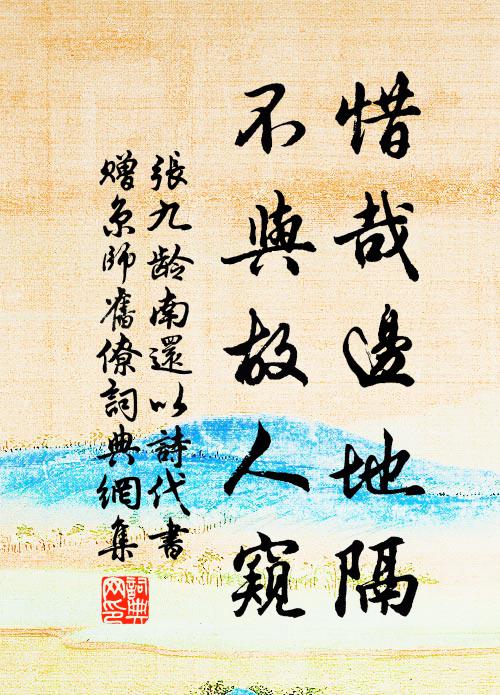 惜哉邊地隔
不與故人窺
張九齡南還以詩代書
贈京師舊僚詞典網集
詞典網印